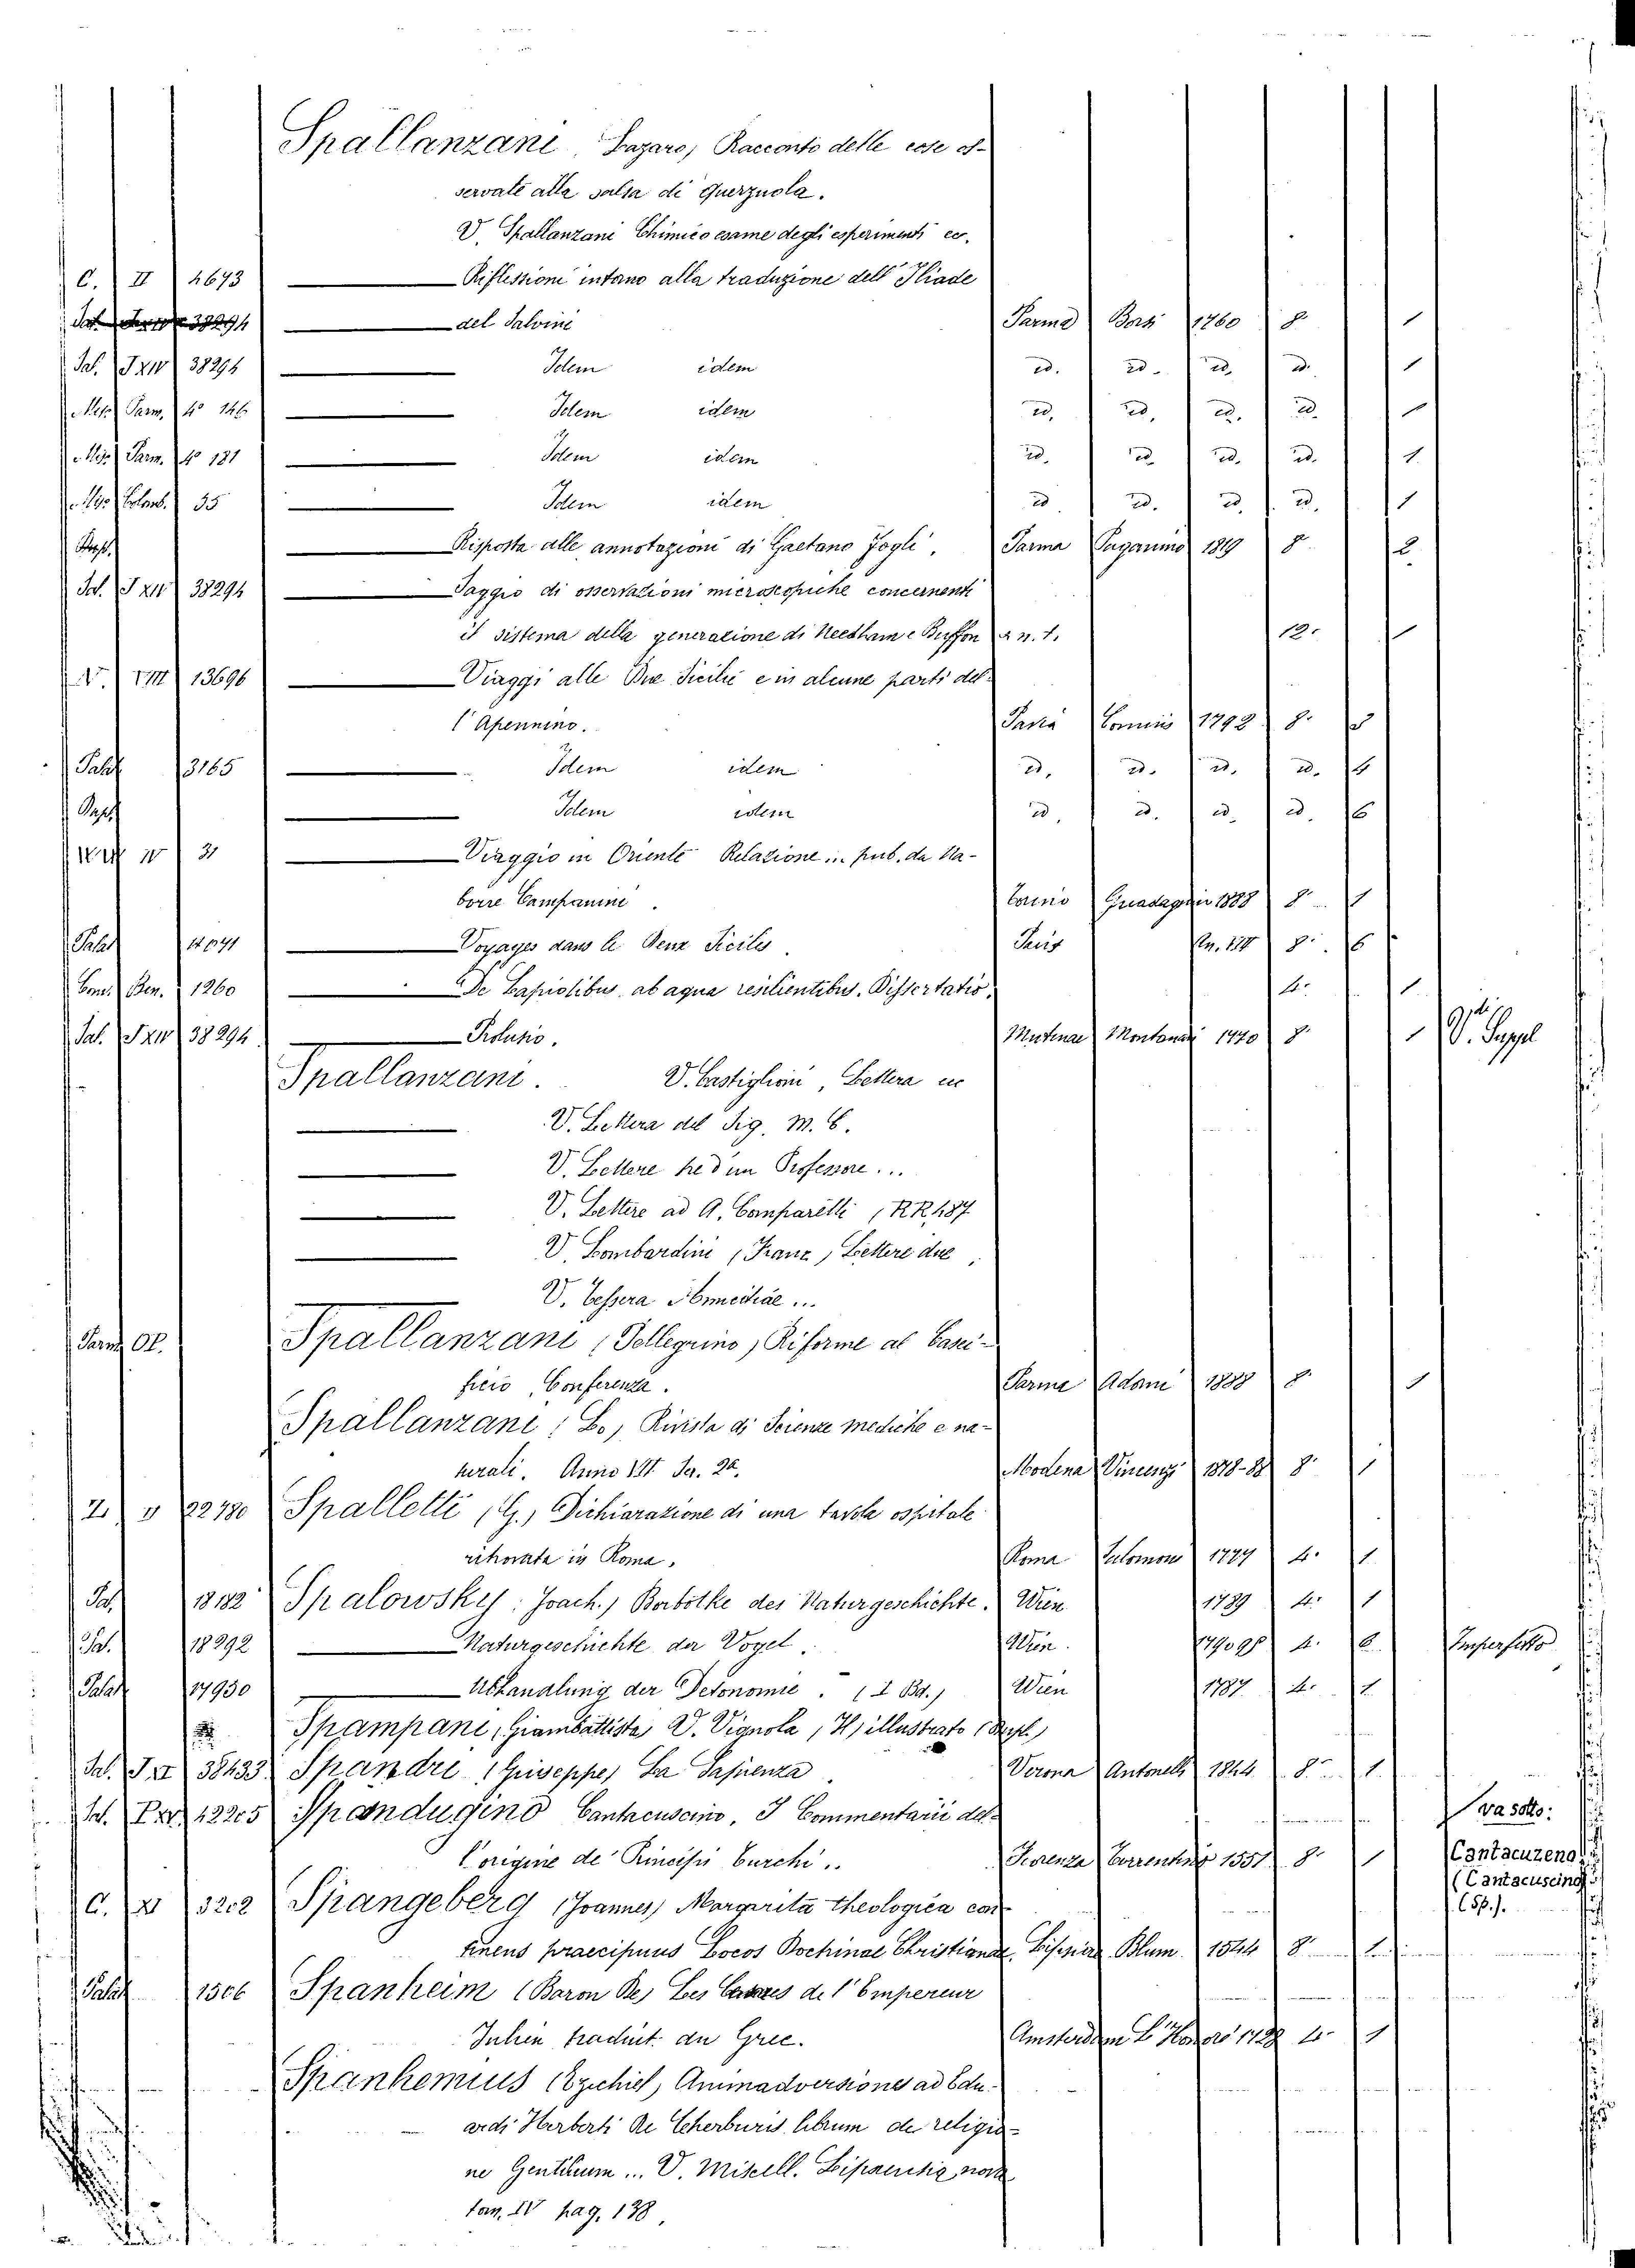 Spallanzani, Lazaro, Racconto delle cose os-
servate alla salsa di Querzuola.
V. Spallanzani Chimico esame degli esperimenti ec.
C. II 4673 Riflessioni intorno alla traduzione dell' Iliade
38294 del Salvini Parma 1760 8° 1
Sal. 38294 Idem idem id. id. id. id. 1
Misc. Parm. 4° 146 Idem idem id. id. id. id. 1
Misc. Parm. 4° 181 Idem idem id. id. id. id. 1
Misc. Colomb. 35 Idem idem id. id. id. id. 1
Risposta alle annotazioni di Gaetano Fogli. Parma Paganino 1819 8° 2
Sal. 38294 Saggio di osservazioni microscopiche concernenti
il sistema della generazione di Needham e Buffon a n. t. 12° 1
V. VIII 13696 Viaggi alle Due Sicilie e in alcune parti del-
l'Apennino. Pavia Comini 1792 8°
Palat 13165 Idem idem id. id. id. id.
Idem idem id. id. id. id. 6
31 Viaggio in Oriente Relazione ... pub. da Na-
borre Campanini. Torino 1888 8° 1
Palat Voyages dans le Deux Siciles. Paris 8° 6
Ben. 1260 De Lapidibus ab aqua resilientibus. Dissertatio. 4° 1
Sal. 38294 Prolusio. Mutinae Montanari 1770 8° 1 V. Suppl
Spallanzani. V. Castiglioni, Lettera ec
V. Lettera del Sig. M. C.
V. Lettere tre d'un Professore ...
V. Lettere ad A. Comparetti, RR, 487
V. Lombardini (Franc.) Lettere due.
V. Tessera Nomediae ...
Parm Ol. Spallanzani (Pellegrino) Riforme al Casei-
ficio, Conferenza. Parma Adorni 1888 8° 1
Spallanzani: Lo, Rivista di Scienze mediche e na-
turali. Anno Modena Vincenzi 1878-88 8° 1
22780 Spalletti (G.) Dichiarazione di una tavola ospitale
ritrovata in Roma. Roma Salomoni 1777 4° 1
Sal. 18182 Spalowsky: Joach.) Borbotke des Naturgeschichte. Wien 1789 4° 1
Sal. 18292 Naturgeschichte der Vogel. Wien 4° Imperfetto
Palat 17930 Abhandlung der Detonomie. (I Bd.) Wien 1787 4° 1
Spampani (Giambattista) V. Vignola, Il, illustrato
Sal. 38433 Spandri (Giuseppe) La Sapienza Verona Antonelli 1844 8° 1
Sal. 12205 Spandugino Cantacuscino, I Commentarii del-
l'origine de' Principi Turchi. Fiorenza Torrentino 1551 8° 1
va sotto:
Cantacuzeno
(Cantacuscino)
(Sp.).
C. XI 3202 Spangeberg (Joannes) Margarita theologica con-
tinens praecipuos Locos Doctrinae Christianae. Lipsiae Blum. 1544 8° 1
Palat 1506 Spanheim (Baron De) Les Cesares de l'Empereur
Julien traduit du Grec. Amsterdam L'Honoré 1728 4° 1
Spanhemius (Ezechiel) Animadversiones ad Edu-
ardi Herberti De Cherburis librum de religio-
ne Gentilium ... V. Miscell. Lipsiensia nova
tom. IV pag. 138.